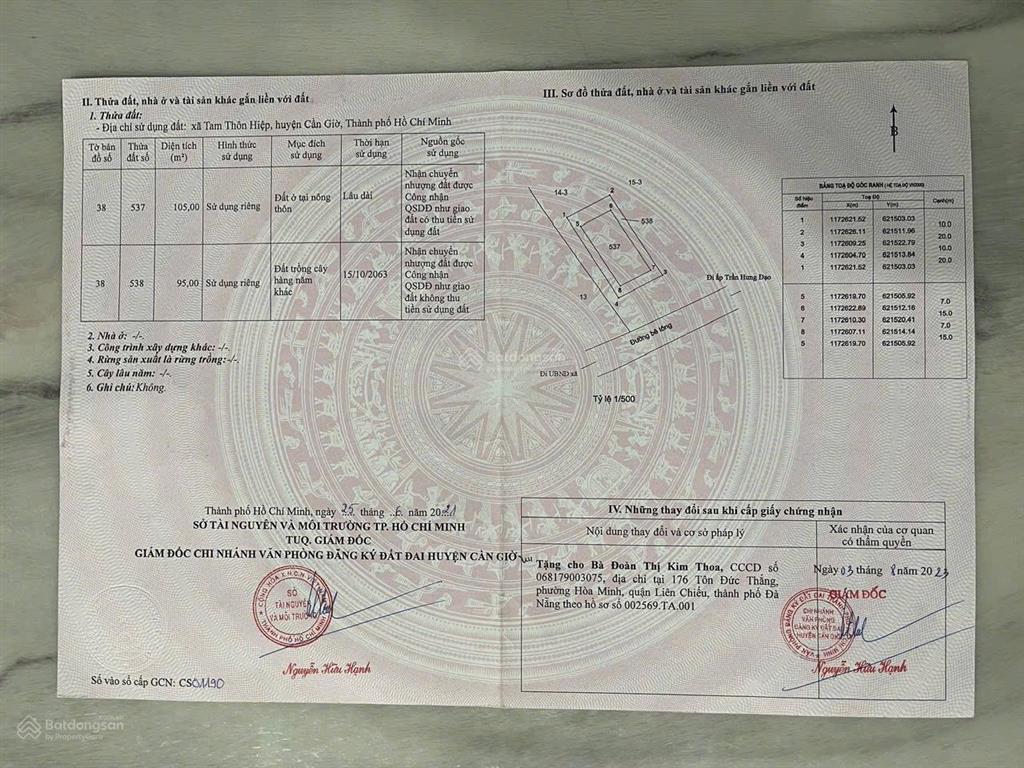 II. Thửa đất, nhà ở và tài sản khác gắn liền với đất
1. Thửa đất:
- Địa chỉ sử dụng đất: xã Tam Thôn Hiệp, huyện Cần Giờ, Thành phố Hồ Chí Minh
Tờ bản đồ số
Thửa đất số
Diện tích (m²)
Hình thức sử dụng
Mục đích sử dụng
Thời hạn sử dụng
Nguồn gốc sử dụng
38
537
105,00
Sử dụng riêng
Đất ở tại nông thôn
Lâu dài
Nhận chuyển
nhượng đất được
Công nhận
QSDĐ như giao
đất có thu tiền sử
dụng đất
38
538
95,00
Sử dụng riêng
Đất trồng cây
hàng năm
khác
15/10/2063
Nhận chuyển
nhượng đất được
Công nhận
QSDĐ như giao
đất không thu
tiền sử dụng đất
2. Nhà ở: -/-.
3. Công trình xây dựng khác: -/-.
4. Rừng sản xuất là rừng trồng:-/-.
5. Cây lâu năm: -/-.
6. Ghi chú:Không.
Thành phố Hồ Chí Minh, ngày 25 tháng 6 năm 2021
SỞ TÀI NGUYÊN VÀ MÔI TRƯỜNG TP. HỒ CHÍ MINH
TUQ. GIÁM ĐỐC
GIÁM ĐỐC CHI NHÁNH VĂN PHÒNG ĐĂNG KÝ ĐẤT ĐAI HUYỆN CẦN GIỜ
SỞ
TÀI NGUYÊN
VÀ MÔI TRƯỜNG
THÀNH PHỐ HỒ CHÍ MINH
Nguyễn Hữu Hạnh
Số vào sổ cấp GCN: CS01190
III. Sơ đồ thửa đất, nhà ở và tài sản khác gắn liền với đất
B
14-3
15-3
1
2
5
6
538
537
7
3
8
4
13
Đi ấp Trần Hưng Đạo
Đường bê tông
Đi UBND xã
Tỷ lệ 1/500
BẢNG TOẠ ĐỘ GÓC RANH (HỆ TỌA ĐỘ VN2000)
Số hiệu điểm
Toạ Độ
X(m)
Y(m)
Cạnh(m)
1 1172621.52 621503.03
10.0
2 1172626.11 621511.96
20.0
3 1172609.25 621522.79
10.0
4 1172604.70 621513.84
20.0
1 1172621.52 621503.03
5 1172619.70 621505.92
7.0
6 1172622.89 621512.16
15.0
7 1172610.30 621520.41
7.0
8 1172607.11 621514.14
15.0
5 1172619.70 621505.92
IV. Những thay đổi sau khi cấp giấy chứng nhận
Nội dung thay đổi và cơ sở pháp lý
Xác nhận của cơ quan
có thẩm quyền
Tặng cho Bà Đoàn Thị Kim Thoa, CCCD số
068179003075, địa chỉ tại 176 Tôn Đức Thắng,
phường Hòa Minh, quận Liên Chiểu, thành phố Đà
Nẵng theo hồ sơ số 002569.TA.001
Ngày 03 tháng 8 năm 2023
GIÁM ĐỐC
CHI NHÁNH
VĂN PHÒNG
ĐĂNG KÝ ĐẤT ĐAI
HUYỆN CẦN GIỜ
Nguyễn Hữu Hạnh
Batdongsan
by PropertyGuru
Batdongsan
by PropertyGuru